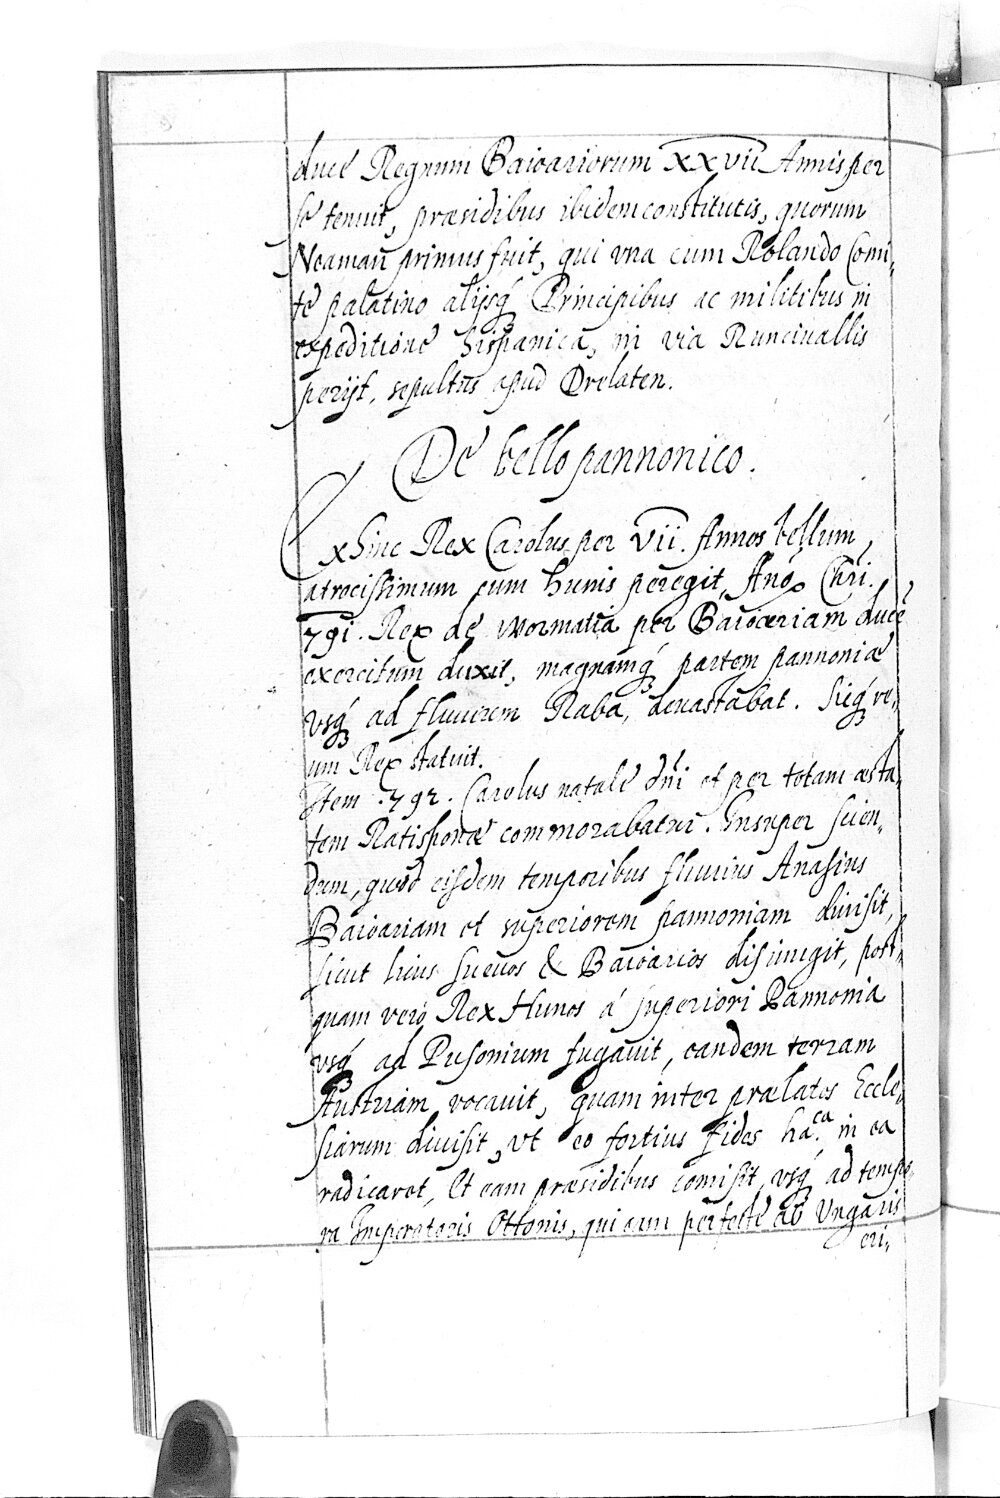 duce Regnum Baioariorum XXVII Annis per
se tenuit, præsidibus ibidem constitutis, quorum
Neaman primus fuit, qui vna cum Rolando Comi-
te palatino alijsq́ Principibus ac militibus in
expeditione hispanica, in via Runciuallis
perijt, sepultus apud Orelaten.
De bello pannonico.
Exhinc Rex Carolus per VII. Annos bellum
atrocissimum cum hunis peregit, Anõ Chri.
791. Rex de wormatia per Baioariam duce
exercitum duxit, magnamq́ partem pannoniæ
vsq́ ad fluuium Raba, deuastabat. Sicq́ re-
um Rex statuit.
Item .792. Carolus natale dni et per totam æsta-
tem Ratisponæ commorabatur. Insuper scien-
dum, quod eisdem temporibus fluuius Anasius
Baioariam et superiorem pannoniam diuisit,
sicut licus Sueuos & Baioarios disiungit, post-
quam verò Rex Hunos á superiori Pannonia
vsq́ ad Pusonium fugauit, eandem terram
Austriam vocauit, quam inter prælatos Eccle-
siarum diuisit, vt eo fortius fides ha.ca in ea
radicaret, Et eam præsidibus comisit, vsq́ ad tempo-
ra Imperatoris Ottonis, qui eam perfecte ab Vngaris
eri-